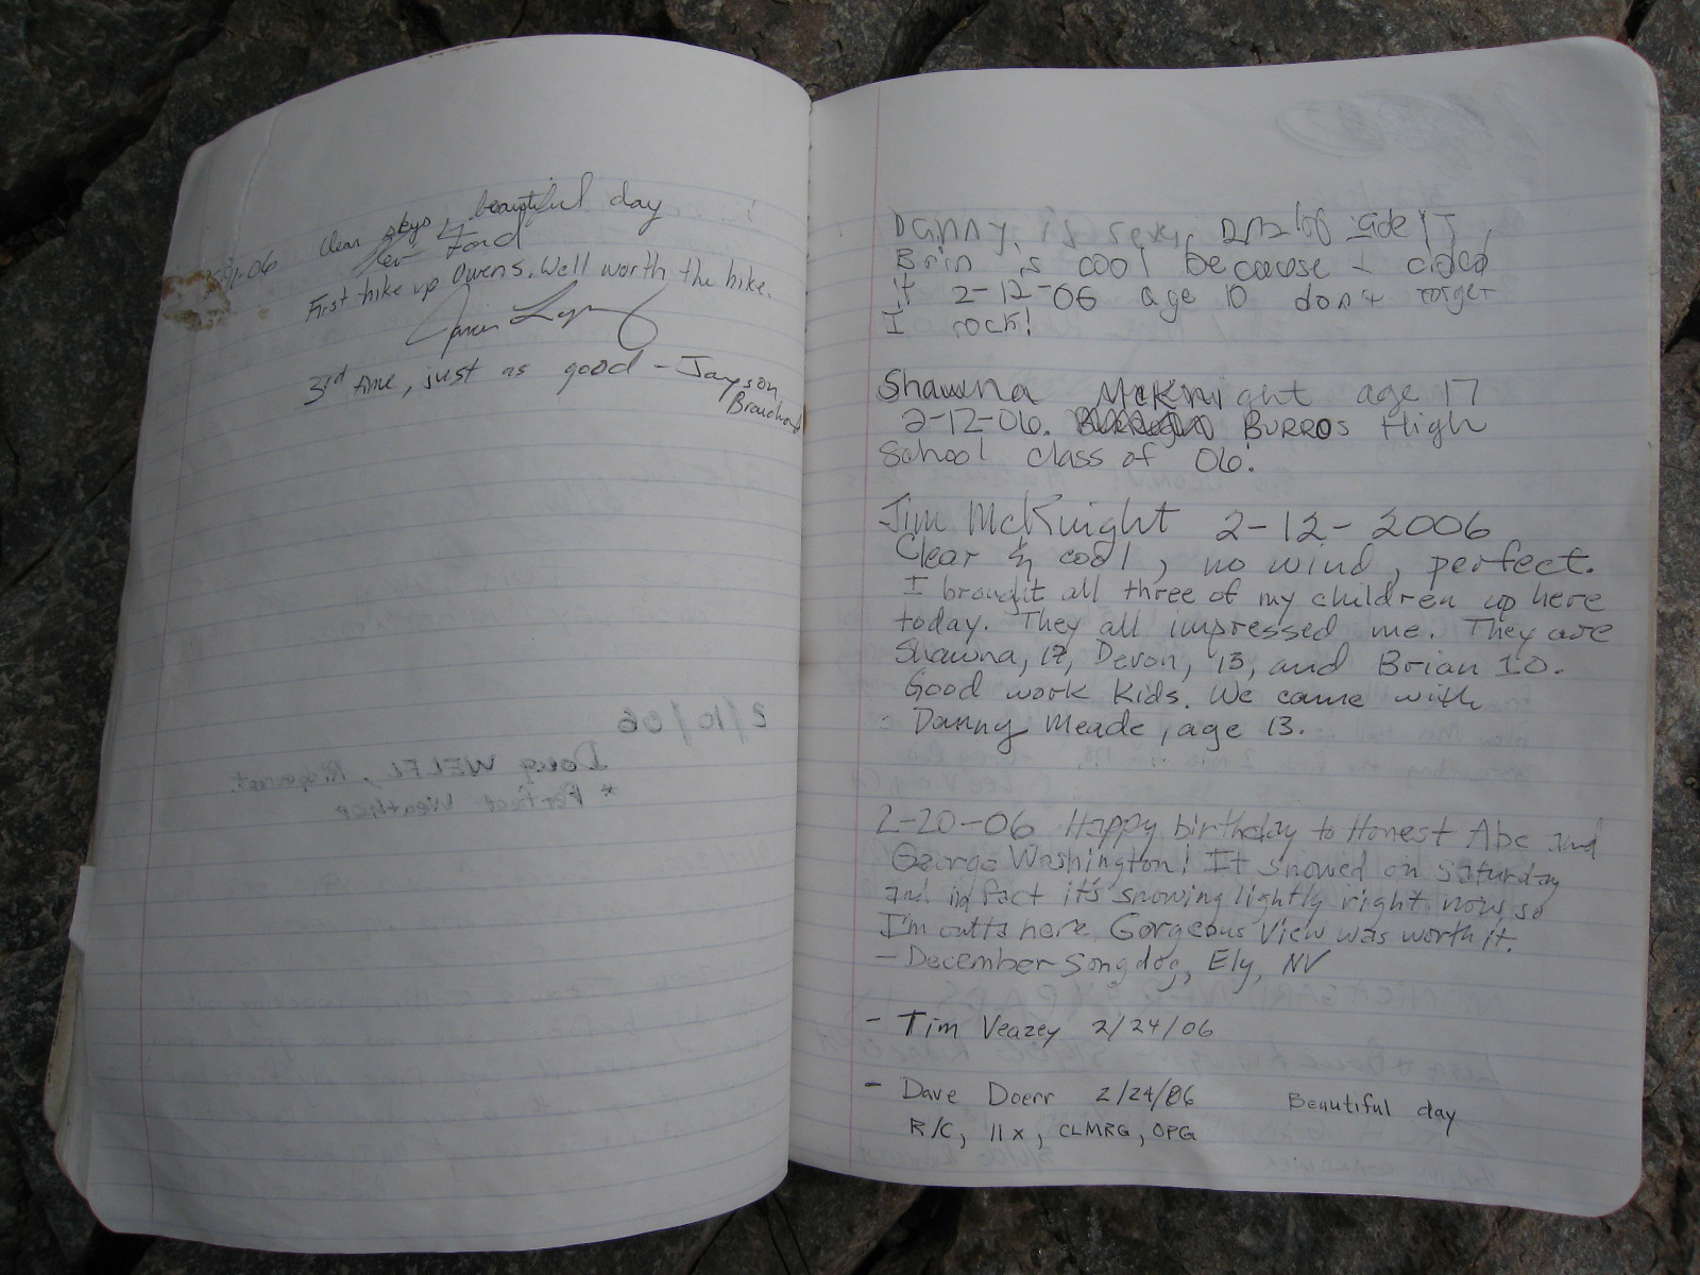 06 Clear skys, beautiful day
Ford
First hike up Owens. Well worth the hike.
3rd time, just as good - Jayson
Danny is sexy
Brin is cool because I
it 2-12-06 age 10 dont forget
I rock!
Shawna McKnight age 17
2-12-06. BURROS High
School class of 06.
Jim McKnight 2-12-2006
Clear & cool, no wind, perfect.
I brought all three of my children up here
today. They all impressed me. They are
Shawna, 17, Devon, 13, and Brian 10.
Good work kids. We came with
Danny Meade, age 13.
2-20-06 Happy birthday to Honest Abe and
George Washington! It snowed on Saturday
and in fact it's snowing lightly right now, so
I'm outta here. Gorgeous View was worth it.
- December Songdog, Ely, NV
- Tim Veazey 2/24/06
- Dave Doerr 2/24/06 Beautiful day
R/C, 11x, CLMRG, OPG
2/10/06
Doug WELFL, Ridgecrest
* Perfect Weather